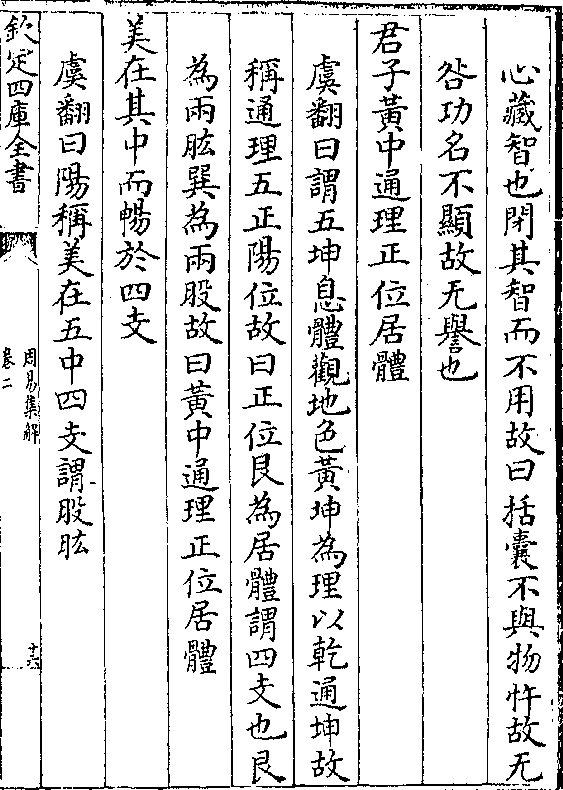 心藏智也閉其智而不用故曰括囊不與物忤故无
咎功名不顯故无譽也
君子黃中通理正位居體
虞翻曰謂五坤息體觀地色黃坤為理以乾通坤故
稱通理五正陽位故曰正位艮為居體謂四支也艮
為兩肱巽為兩股故曰黃中通理正位居體
美在其中而暢於四支
虞翻曰陽稱美在五中四支謂股肱
欽定四庫全書
周易集解
卷二
十六